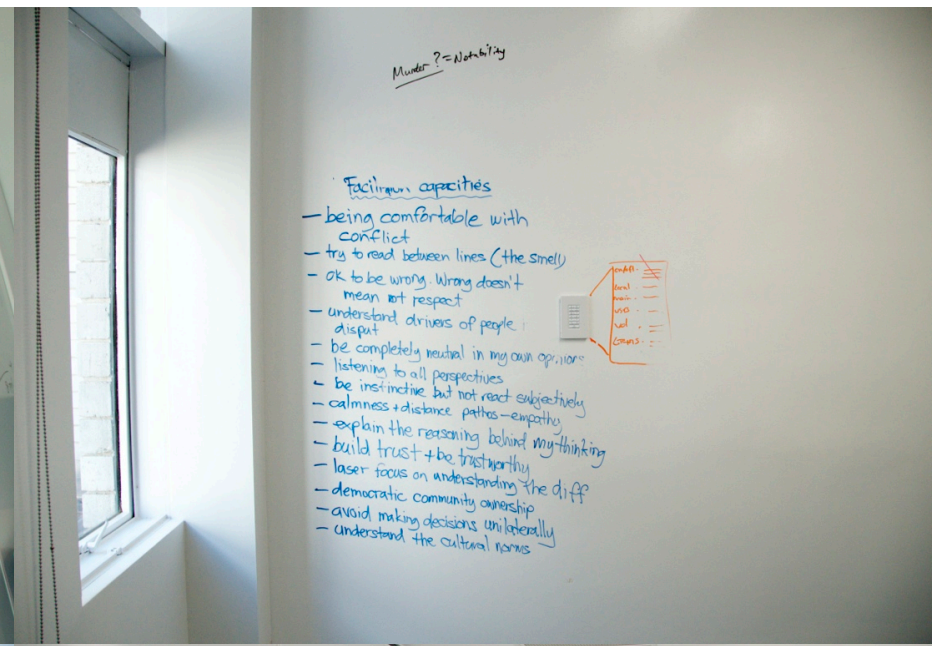 Murder? = Notability
capacities
— being comfortable with
conflict
— try to read between lines (the smell)
— ok to be wrong. Wrong doesn't
mean not respect
— understand drivers of people
disput
— be completely neutral in my own
— listening to all perspectives
— be instinctive but not react subjectively
— calmness + distance pathos – empathy
— explain the reasoning behind my thinking
— build trust + be trustworthy
— laser focus on understanding the diff
— democratic community ownership
— avoid making decisions unilaterally
— understand the cultural norms
vol